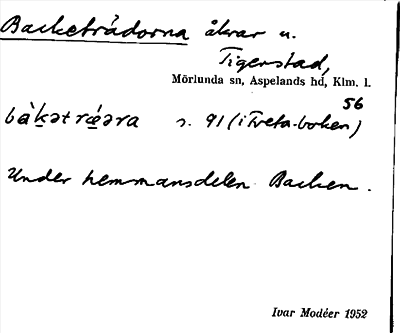 Backeträdorna åkrar u.
Tigerstad,
Mörlunda sn, Aspelands hd, Klm. l.
56
s. 91 (i Tveta-boken)
Under hemmansdelen Backen.
Ivar Modéer 1952